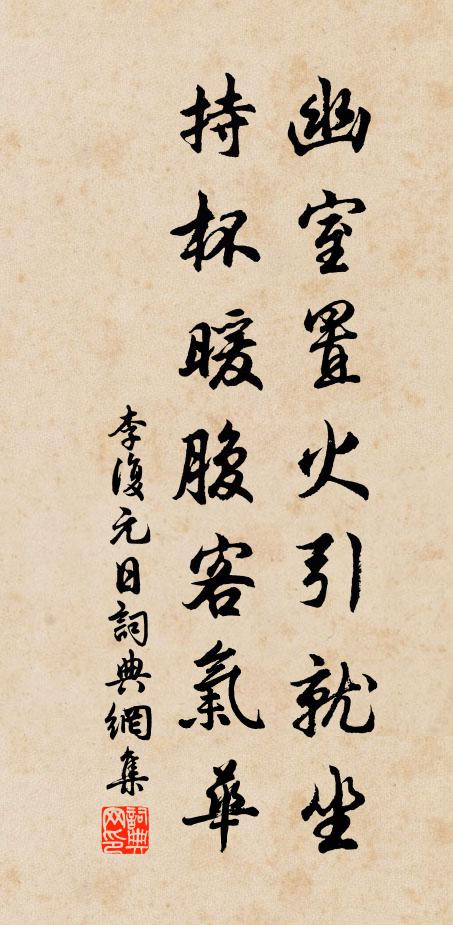 幽室置火引就坐
持杯暖腹客氣華
李復元日詞典網集
詞典网印